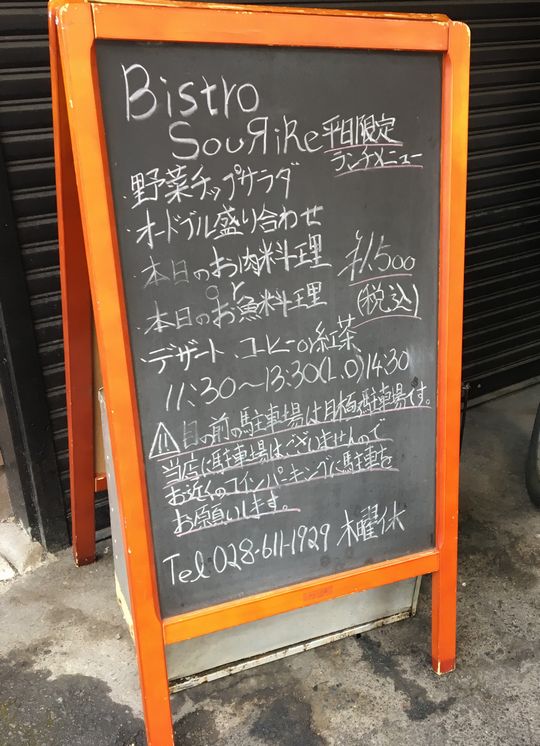 Bistro
SouRiRe 平日限定
ランチメニュー
・野菜チップサラダ
・オードブル盛り合わせ
・本日のお肉料理
or
・本日のお魚料理
¥1,500
(税込)
・デザート、コーヒーor紅茶
11:30〜13:30(L.O)14:30
⚠目の前の駐車場は月極駐車場です。
当店に駐車場はございませんので
お近くのコインパーキングに駐車を
お願いします。
Tel 028-611-1929 木曜休